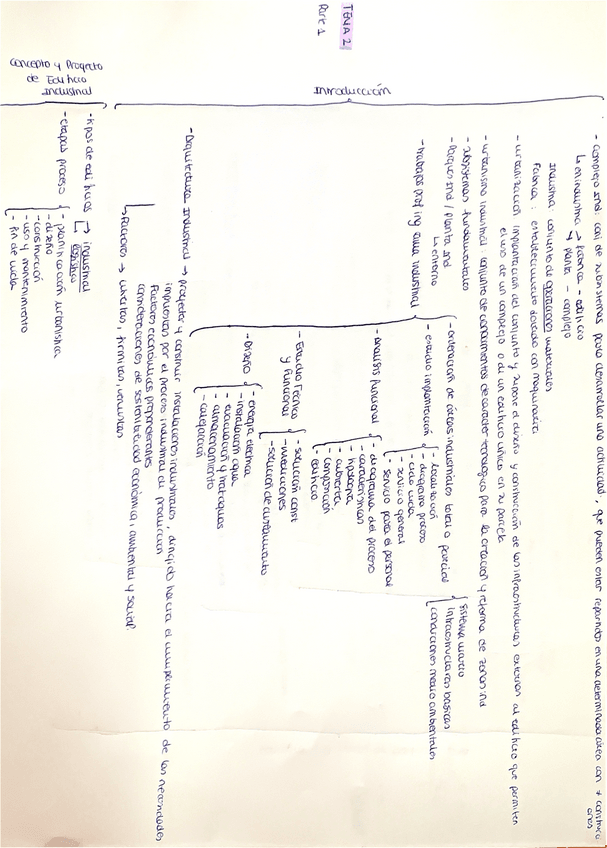 TEMA 2
Parte 1
Introducción
- Complejo ind: conj de subsistemas para desarrollar una actividad, que pueden estar repartidos en una determinada área con ≠ construcciones
La en industria → fabrica - edificio
→ planta - complejo
Industria: conjunto de operaciones materiales
Fabrica: establecimiento dotado con maquinaria
- urbanización implantación del conjunto y supone el diseño y construcción de las infraestructuras externas al edificio que permiten
el uso de un complejo o de un edificio único en su parcela
- urbanismo industrial: conjunto de conocimientos de caracter tecnologico para la creación y reforma de zonas ind
- subsistemas fundamentales
- Parques ind / planta ind
↳ entorno
- trabajos prof ing area industrial
- ordenación de áreas industriales total o parcial
sistema viario
infraestructuras basicas
condiciones medio ambientales
- estudio implantación
- localización
- diagrama proceso
- ciclo
- servicio general
- servicio para el personal
- analisis funcional
- diagrama del proceso
- características
- tipología
- composición
- edificio
- Estudio Técnico
y Funcional
- solución const
- instalaciones
- solución de cerramiento
- Diseño
- energía eléctrica
- instalación agua
- evacuación y
- almacenamiento
- calefacción
- Arquitectura Industrial → proyecto y construir instalaciones industriales, dirigido hacia el cumplimiento de las necesidades
impuestas por el proceso industrial de producción
Factores económicos preponderantes
consideraciones de sostenibilidad económica, ambiental y social
↳ Factores → utilitas, firmitas, venustas
Concepto y Proyecto
de Edificio
Industrial
- tipos de edificios → industrial
logístico
- etapas proceso
- planificación urbanística
- diseño
- construcción
- uso y mantenimiento
- fin de vida